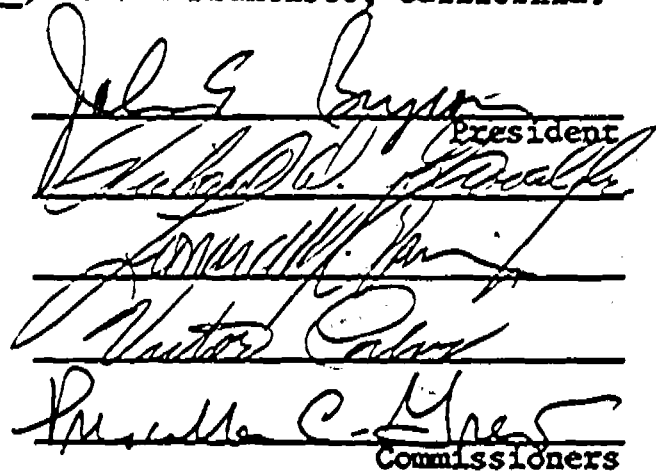 John E Bryson
President
Richard D. Gravelle
Leonard M. Grimes
Victor Calvo
Priscilla C. Grew
Commissioners